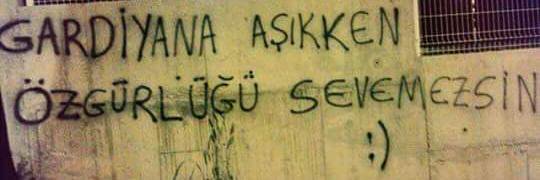 GARDİYANA AŞIKKEN
ÖZGÜRLÜĞÜ SEVEMEZSİN
:)